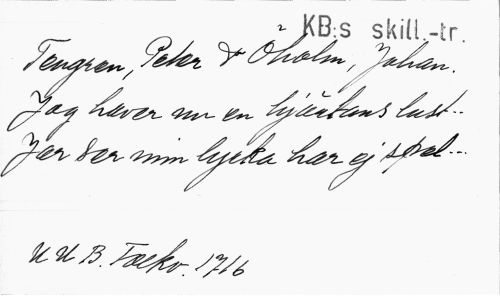 KB:s skill.-tr.
Tengren, Peter & Öholm, Johan.
Jag haver nu en hjärtans lust..
Jag ser min lycka har ej spel...
U U B. Folkv. 1716